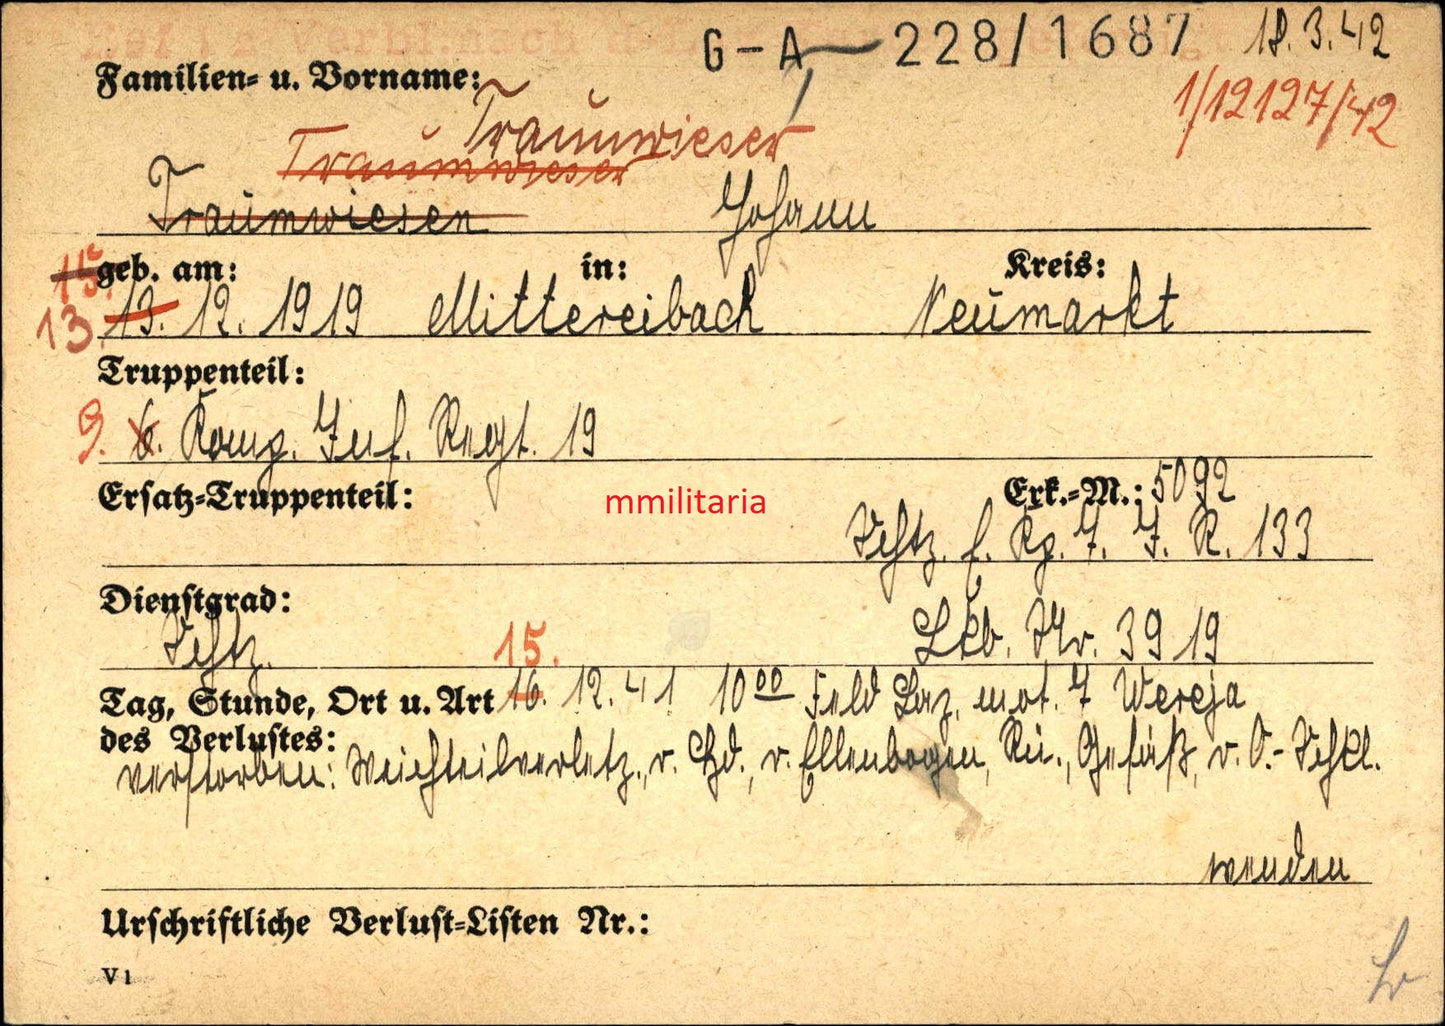 G-A 228/1687 18.3.42
1/12127/42
Familien- u. Vorname:
Traunwieser
Traumwieser
Traumwiesen Johann
geb. am: in: Kreis:
15.
13. 13. 12. 1919 Mittereibach Neumarkt
Truppenteil:
9. 6. Komp. Inf. Regt. 19
Ersatz-Truppenteil: mmilitaria Erk.-M.: 5092
Schtz. f. Kp. I. J. R. 133
Dienstgrad: Lkb. Nr. 3919
Schtz.
15.
Tag, Stunde, Ort u. Art 16. 12. 41 10 00 Feld Laz. mot. 7 Wereja
des Verlustes:
verstorben: Weichteilverletz., r. Hd., r. Ellenbogen, Rü., Gesäß, r. O.-Schkl.
wenden
Urschriftliche Verlust-Listen Nr.:
V 1